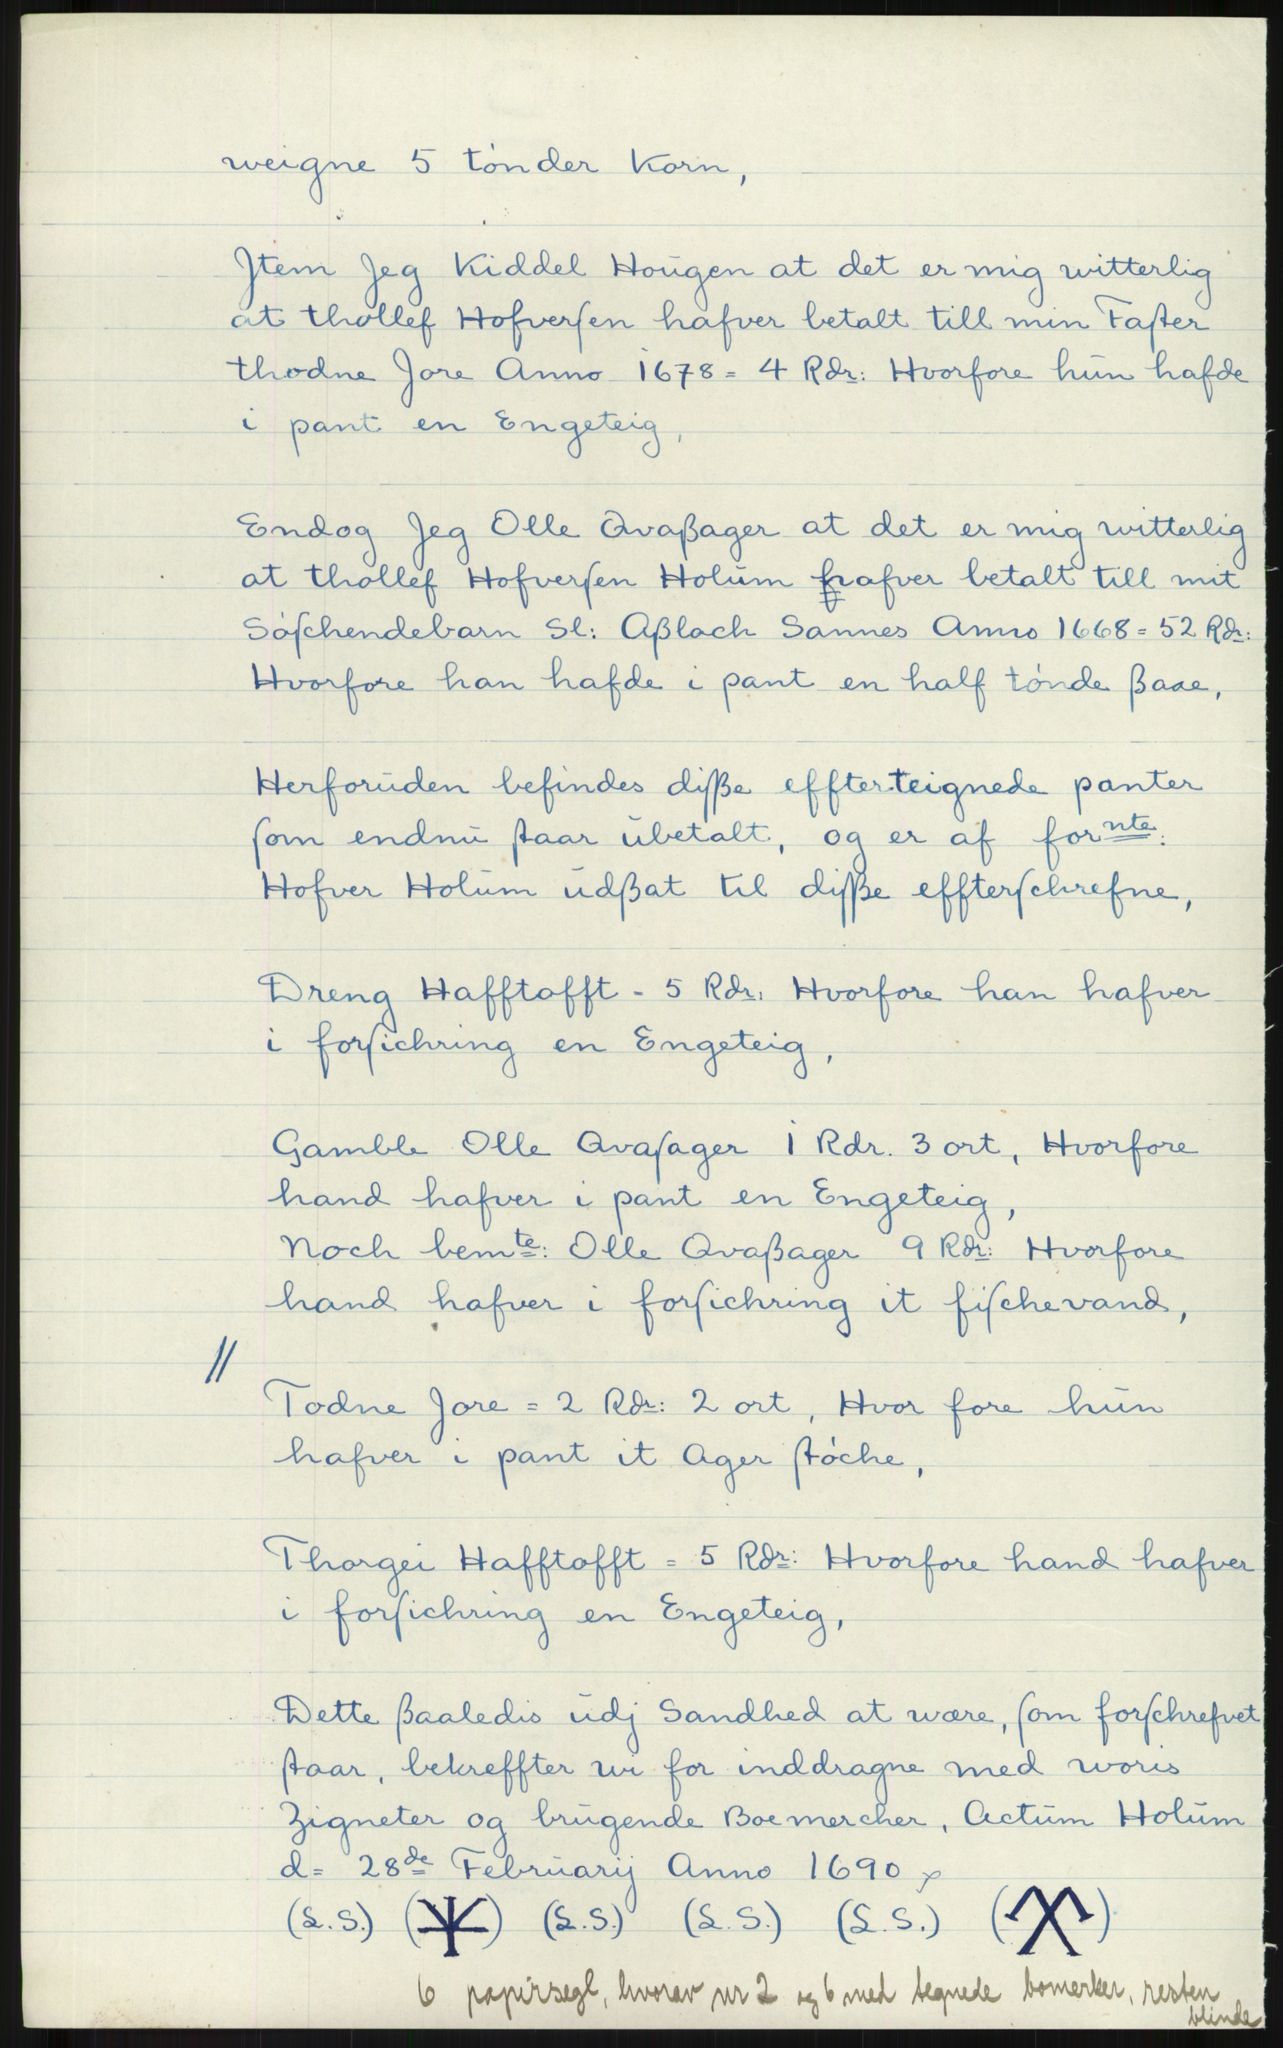 weigne 5 tónder Korn,
Jtem Jeg Kiddel Hoŭgen at det er mig witterlig
at thollef Hofverſen hafver betalt till min Faſter
thodne Jore Anno 1678 = 4 Rdr: Hvorfore hŭn hafde
i pant en Engeteig,
Endog Jeg Olle Qvaßager at det er mig witterlig
at thollef Hofverſen Holŭm hafver betalt till mit
Sóſchendebarn Sl: Aßlach Sannes Anno 1668 = 52 Rdr:
Hvorfore han hafde i pant en half tónde ßaae,
Herforŭden befindes diſße effterteignede panter
ſom endnŭ ſtaar ŭbetalt, og er af fornte:
Hofver Holŭm ŭdßat til diſße effterſchrefne,
Dreng Hafftofft - 5 Rdr: Hvorfore han hafver
i forſichring en Engeteig,
Gamble Olle Qvaſager 1 Rdr. 3 ort, Hvorfore
hand hafver i pant en Engeteig,
Noch bemte: Olle Qvaßager 9 Rdr: Hvorfore
hand hafver i forſichring it fiſchevand,
//
Todne Jore = 2 Rdr: 2 ort, Hvor fore hŭn
hafver i pant it Ager ſtóche,
Thorgei Hafftofft = 5 Rdr: Hvorfore hand hafver
i forſichring en Engeteig,
Dette ßaaledis ŭdj Sandhed at wære, ſom forſchrefvet
ſtaar, bekreffter wi for inddragne med woris
Zigneter og brŭgende Boemercher, Actŭm Holŭm
d= 28de Febrŭarij Anno 1690
(L.S.) ( ) (L.S.) (L.S.) (L.S.) ( )
6 papirsegl, hvorav nr 2 og 6 med tegnede bomerker, resten
blinde